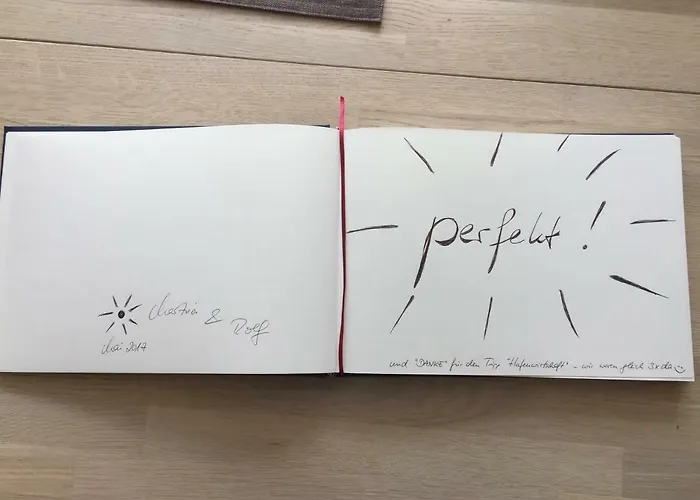 & Rolf
Mai 2017
perfekt !
und "DANKE" für den Tipp "Hafenwirtschaft" - wir waren gleich 3x da